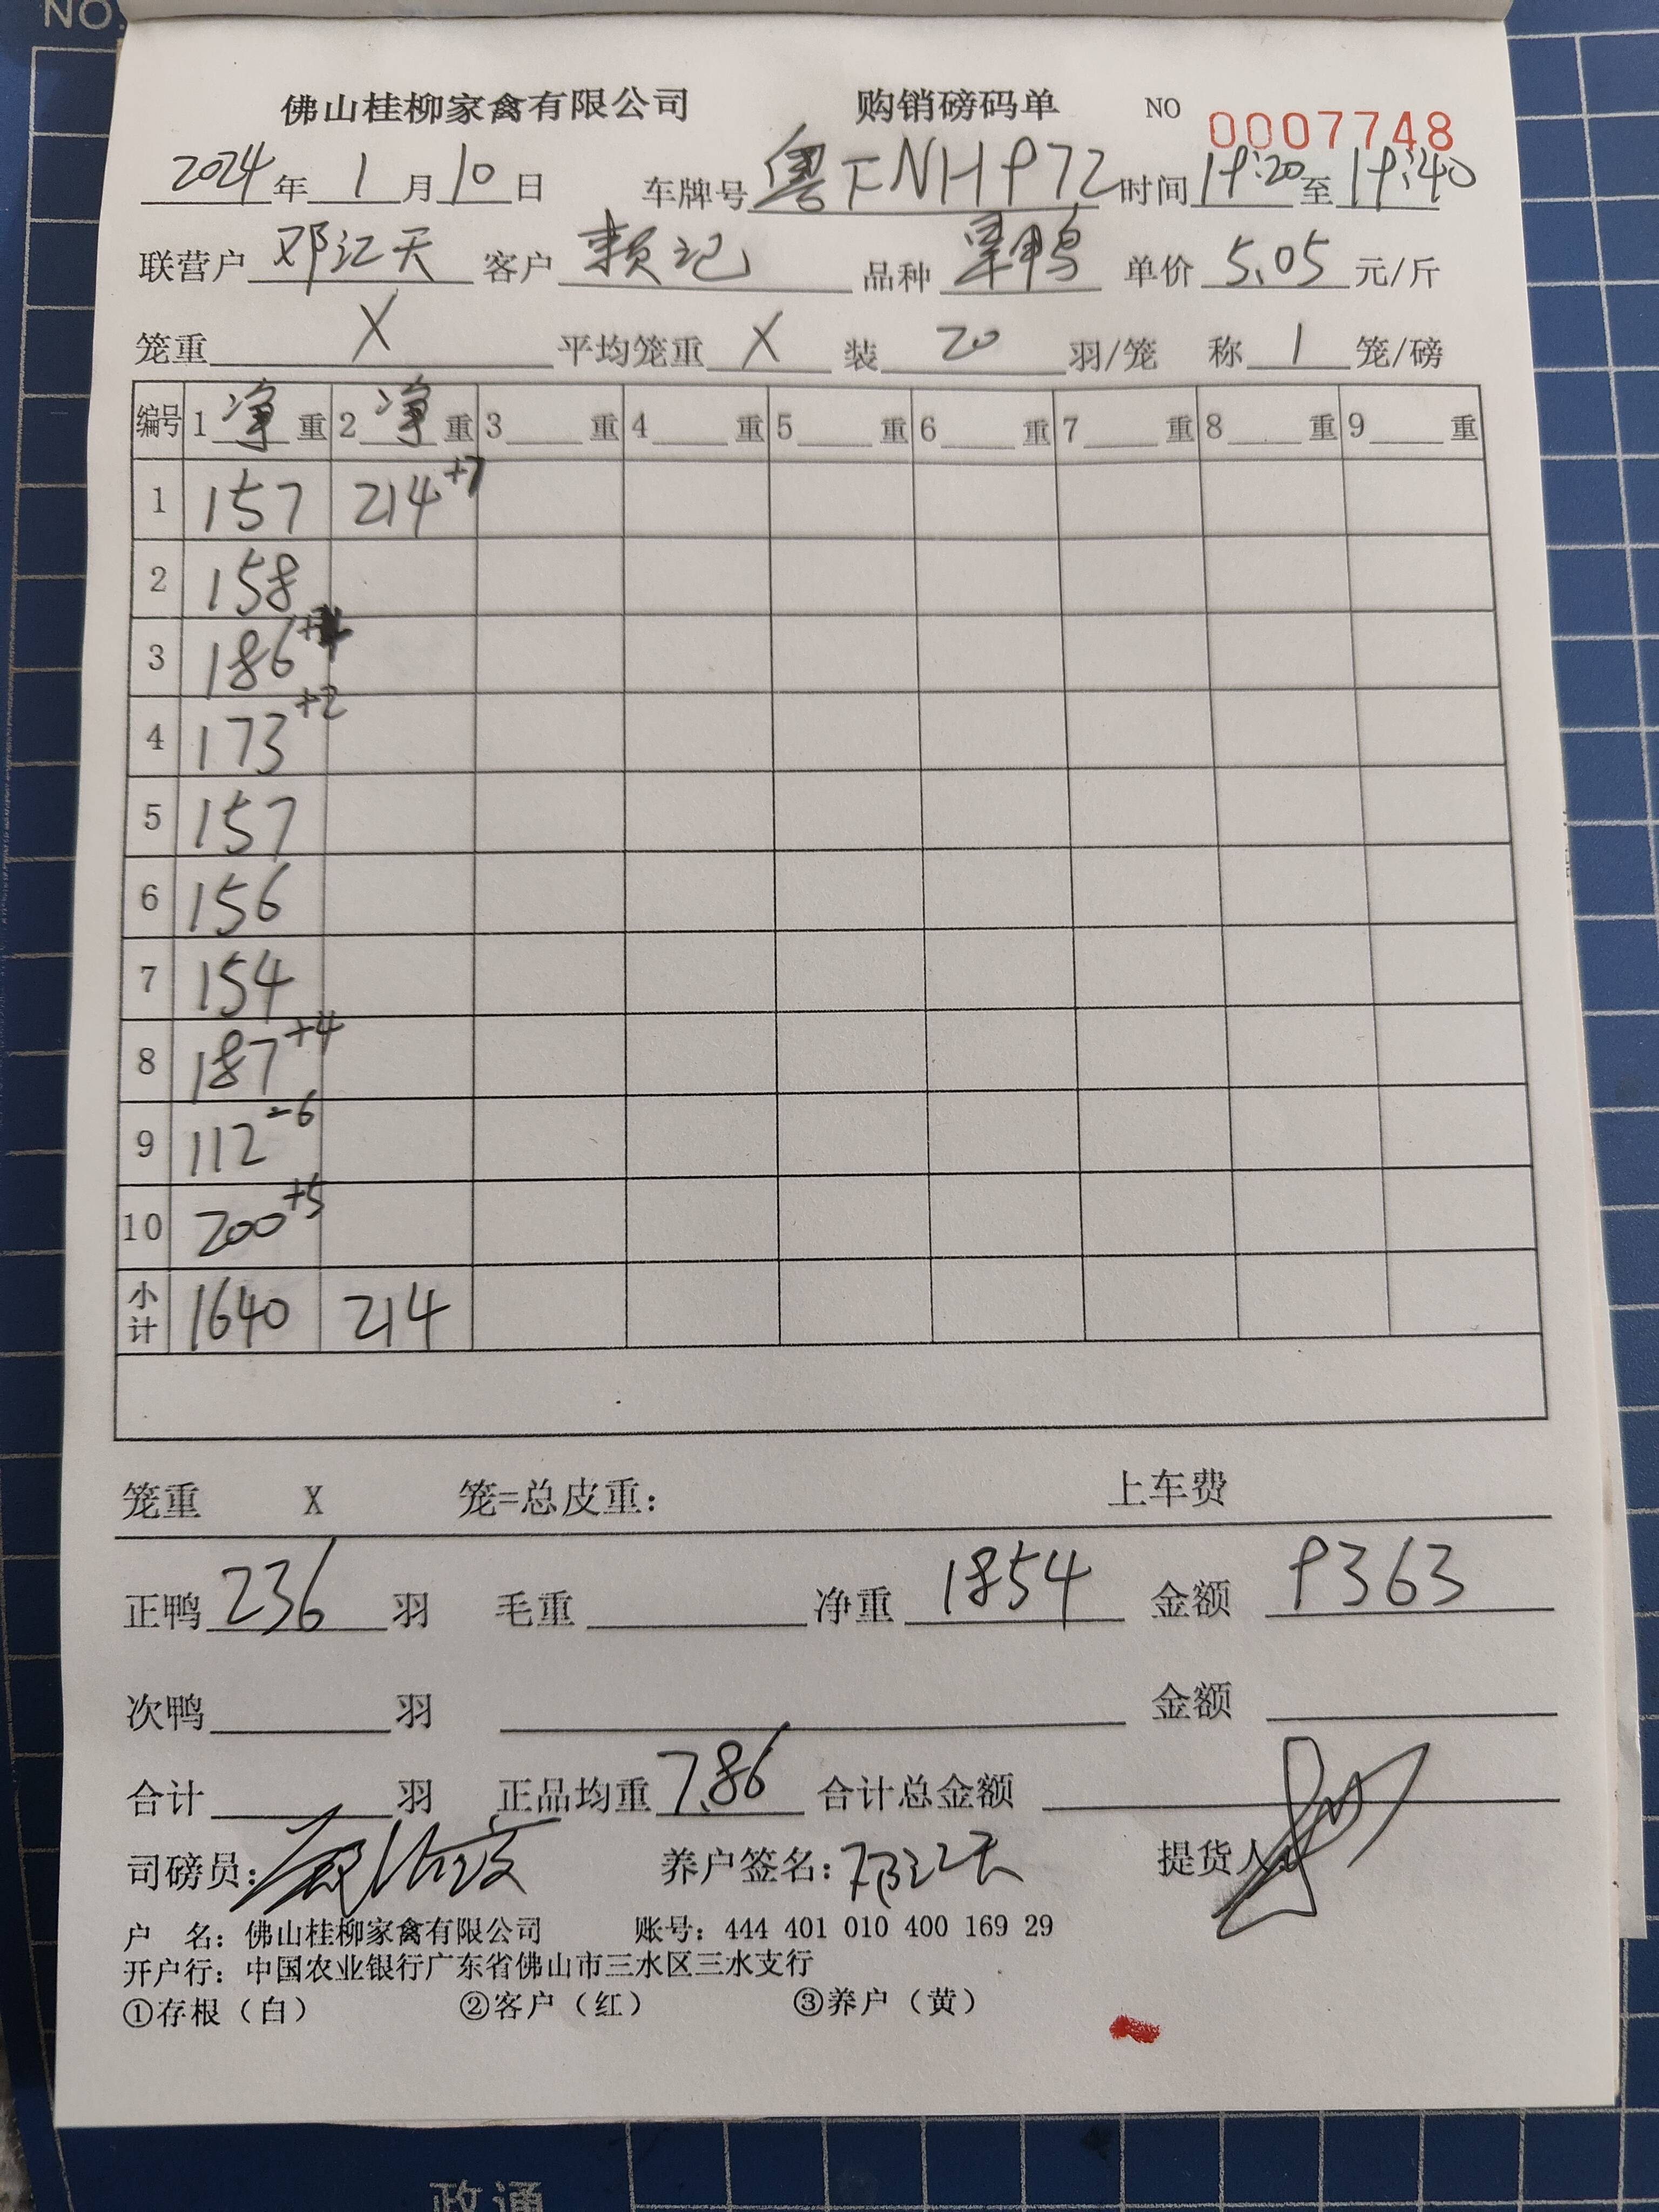 NO.
佛山桂柳家禽有限公司 购销磅码单 NO 0007748
2024年1月10日 车牌号 粤FNH972 时间 19:20 至 19:40
联营户 邓江天 客户 赖记 品种 单价 5.05 元/斤
笼重 X 平均笼重 X 装 20 羽/笼 称 1 笼/磅
编号 1 净 重 2 净 重 3 重 4 重 5 重 6 重 7 重 8 重 9 重
1 157 214+7
2 158
3 186
4 173+2
5 157
6 156
7 154
8 187+4
9 112-6
10 200+5
小计 1640 214
笼重 X 笼=总皮重: 上车费
正鸭 236 羽 毛重 净重 1854 金额 9363
次鸭 羽 金额
合计 羽 正品均重 7.86 合计总金额
司磅员: 养户签名: 邓江天 提货人:
户 名: 佛山桂柳家禽有限公司 账号: 444 401 010 400 169 29
开户行: 中国农业银行广东省佛山市三水区三水支行
①存根（白） ②客户（红） ③养户（黄）
政通